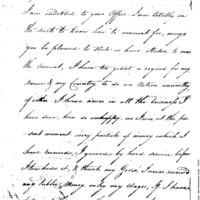 am indebted to your Office, I am totally in
the dark to know how to account for, unless
you be pleased to State or have Stated to me
the Account, I have too great a regard for my
Name & my Country to do an Action unworthy
of either I have never in all the business I
have done, been so unhappy, as I am at the pre
sent moment every particle of money which I
have received, I gained by hard service before
I touched it, & thank my God, I never received
any Public Money only my Wages, If I have